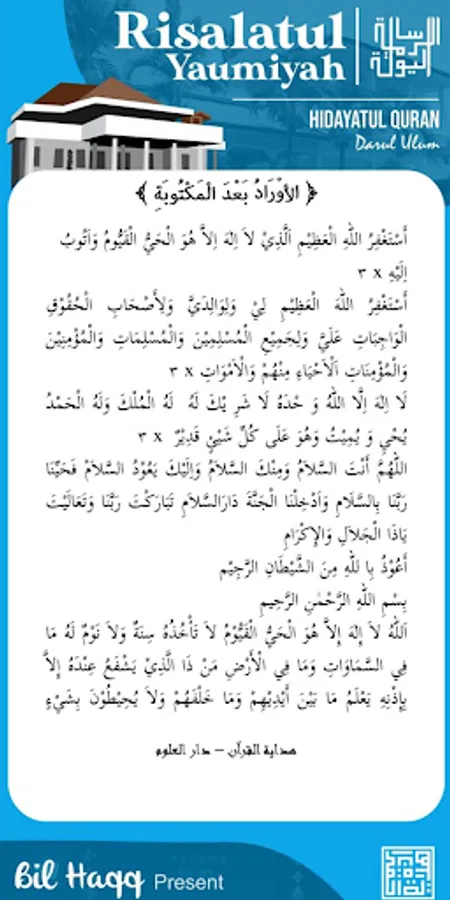 Risalatul
Yaumiyah
الرسالة
اليومية
HIDAYATUL QURAN
Darul Ulum
﴿ الأَوْرَادُ بَعْدَ الْمَكْتُوبَةِ ﴾
أَسْتَغْفِرُ اللهَ الْعَظِيْمِ اَلَّذِيْ لاَ اِلهَ اِلاَّ هُوَ الْحَيُّ الْقَيُّومُ وَأَتُوبُ
إِلَيْهِ x ٣
أَسْتَغْفِرُ اللهَ الْعَظِيْمِ لِيْ وَلِوَالِدَيَّ وَلِأَصْحَابِ الْحُقُوْقِ
الْوَاجِبَاتِ عَلَيَّ وَلِجَمِيْعِ الْمُسْلِمِيْنَ وَالْمُسْلِمَاتِ وَالْمُؤْمِنِيْنَ
وَالْمُؤْمِنَاتِ اَلْاَحْيَاءِ مِنْهُمْ وَالْاَمْوَاتِ x ٣
لَا اِلهَ اِلَّا اللهُ وَ حْدَهُ لَا شَرِ يْكَ لَهُ لَهُ الْمُلْكُ وَلَهُ الْحَمْدُ
يُحْيِ وَ يُمِيْتُ وَهُوَ عَلَى كُلِّ شَيْئٍ قَدِيْرٌ x ٣
اللهُمَّ أَنْتَ السَّلاَمُ وَمِنْكَ السَّلاَمُ وَإِلَيْكَ يَعُوْدُ السَّلاَمُ فَحَيِّنَا
رَبَّنَا بِالسَّلَامِ وَاَدْخِلْنَا الْجَنَّةَ دَارَالسَّلاَمِ تَبَارَكْتَ رَبَّنَا وَتَعَالَيْتَ
يَاذَا الْجَلاَلِ وَالإِكْرَامِ
أَعُوْذُ بِا للهِ مِنَ الشَّيْطَانِ الرَّجِيْمِ
بِسْمِ اللهِ الرَّحْمٰنِ الرَّحِيمِ
اَللهُ لاَ إِلهَ إِلاَّ هُوَ الْحَيُّ الْقَيُّوْمُ لاَ تَأْخُذُهُ سِنَةٌ وَلاَ نَوْمٌ لَهُ مَا
فِي السَّمَاوَاتِ وَمَا فِي الْأَرْضِ مَنْ ذَا الَّذِيْ يَشْفَعُ عِنْدَهُ إِلاَّ
بِإِذْنِهِ يَعْلَمُ مَا بَيْنَ أَيْدِيْهِمْ وَمَا خَلْفَهُمْ وَلاَ يُحِيْطُوْنَ بِشَيْءٍ
هداية القرآن – دار العلوم
Bil Haqq Present